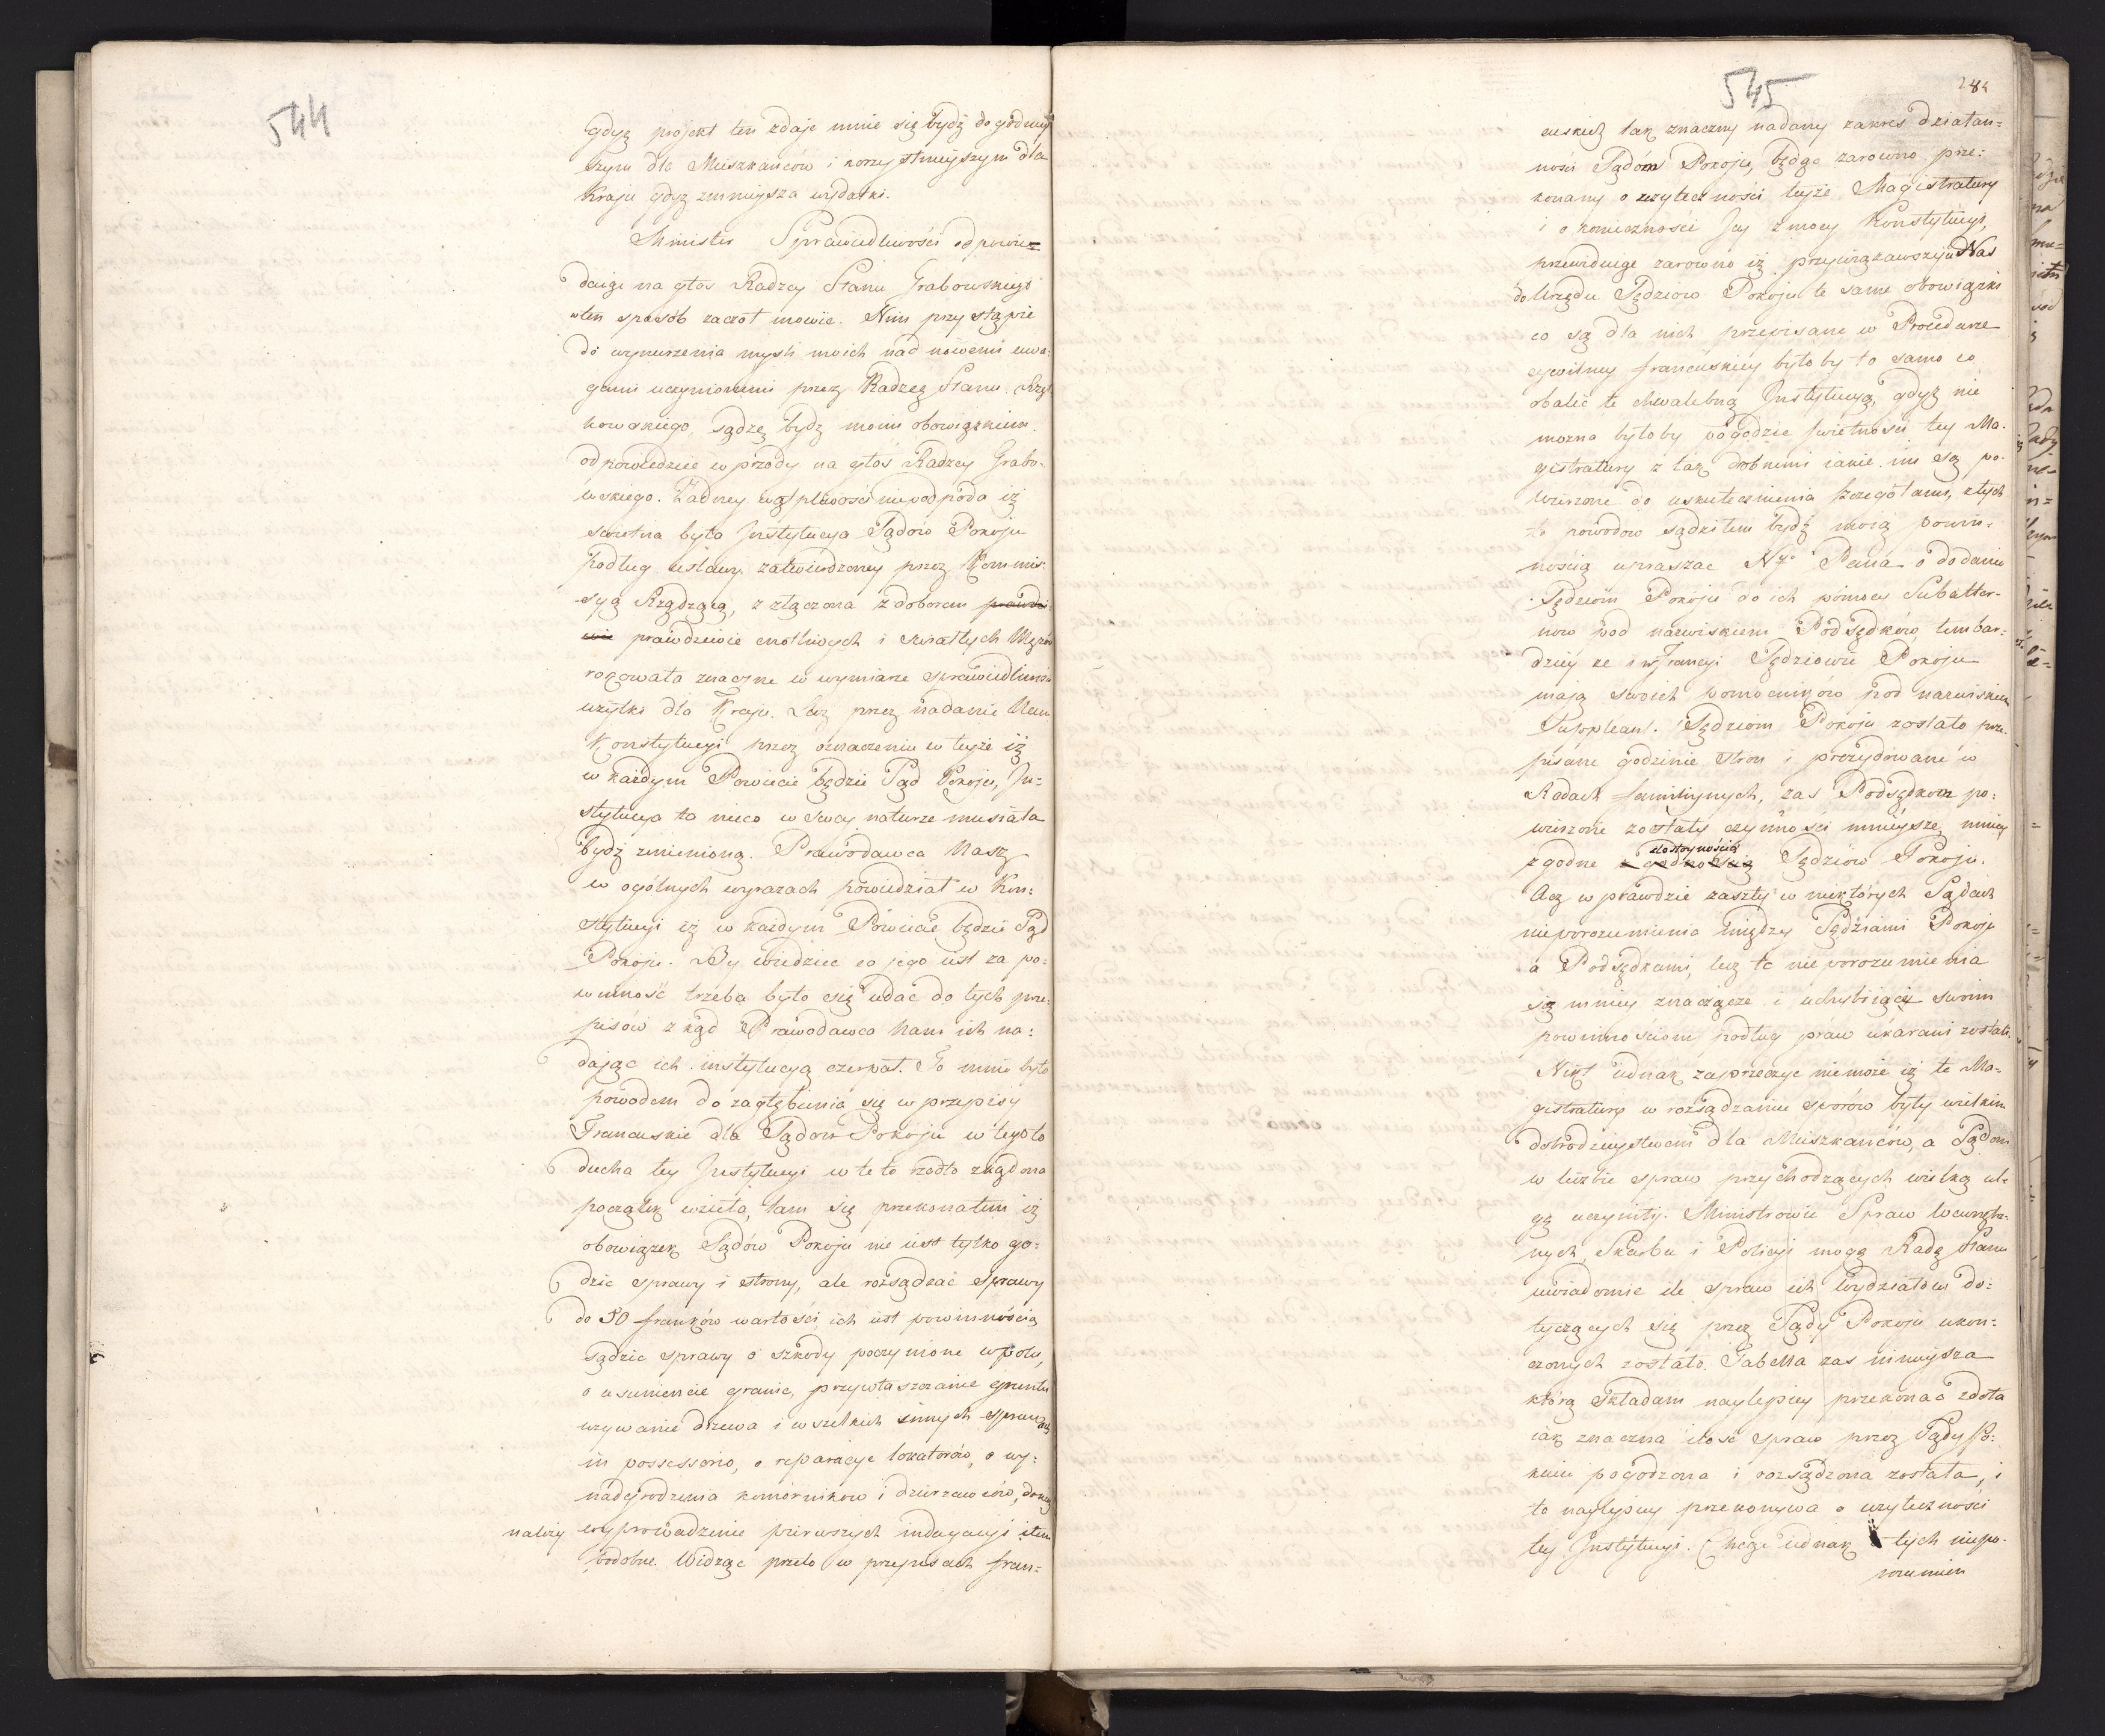 544
Gdyż projekt ten zdaje mnie się bydź dogodniey
szym dla Mieszkańców i korzystnieyszym dla
Kraju gdyż zmnieysza wydatki.
Minister Sprawiedliwości odpowie=
daiąc na głos Radzcy Stanu Grabowskiego
wten sposób zaczoł mowić. Nim przystąpie
do wynurzenia mysli moich nad nowemi uwa-
gami uczynionemi przez Radzcę Stanu
kowskiego, sądzę bydź moim obowiązkiem
odpowiedzieć wprzody na głos Radzcy Grabo-
wskiego. Żadney wątpliwości niepodpada iż
swietna była Instytucya Sądow Pokoju
Podług ustawy zatwierdzoney przez Kommis-
syą Rządzącą, z złączona z doborem prawdzi
wie prawdziwie cnotliwych i swiatłych Mężów
rokowała znaczne w wymiarze sprawiedliwości
użytki dla Kraju. Lecz przez nadanie Nam
Konstytucyi przez oznaczenie w teyże iż
w każdym Powiecie będzie Sąd Pokoju, In=
stytucya ta nieco w swey naturze musiała
bydź zmienioną. Prawodawca Nasz
w ogólnych wyrazach powiedział w Kon=
stytucyi iż w każdym Powiecie będzie Sąd
Pokoju. By wiedzieć co jego iest za po=
winność trzeba było się udać do tych prze-
pisów z kąd Prawodawca Nam ich na=
dając ich instytucyą czerpał. To mnie było
powodem do zagłębienia się w przepisy
Francuskie dla Sądow Pokoju w tegoto
ducha tey Instytucyi w te to rzodło zkąd ona
początek wzieła, tam się przekonałem iż
obowiązek Sądów Pokoju nie iest tylko go=
dzić sprawy i strony, ale rozsądzać sprawy
do 50 franków wartości, ich iest powinnością
sądzić sprawy o szkody poczynione w polu,
o usunięcie granic, przywłaszczanie gruntu
używanie drzewa i wszelkich innych spraw
in possessorio, o reparacye lokatorów, o wy=
nadgrodzenia komorników i dzierzawców, donich
należy wyprowadzenie pierwszych indagacyi i tem
podobne. Widząc przeto w przepisach fran=
545
cuskich tak znaczny nadany zakres działan=
ności Sądom Pokoju, będąc zarowno prze=
konany o użyteczności teyże Magistratury
i o konieczności Jey z mocy Konstytucyi,
przewiduiąc zarowno iż przywiązawszy u Nas
do Urzędu Sędziow Pokoju te same obowiązki
co są dla nich przepisane w Procedurze
cywilney francuskiey byłoby to samo co
obalić te chwalebną Instytucyą, gdyż nie
można byłoby pogodzić swietności tey Ma-
gistratury z tak drobnemi iakie im są po-
wierzone do uskutecznienia szczegółami, z tych
to powodow sądziłem bydź moią powin-
nością upraszać Nyo Pana o dodanie
Sędziom Pokoju do ich pomocy Subalter-
now pod nazwiskiem Podsędków, tembar=
dziey że i w Francyi Sędziowie Pokoju
mają swoich pomocników pod nazwiskiem
Supplean. Sędziom Pokoju zostało prze-
pisane godzenie stron i prezydowanie w
Radach familiynych, zas Podsędkom po=
wierzone zostały czynności mnieysze, mniey
dostoynością
zgodne z godnością Sędziów Pokoju.
Acz wprawdzie zaszły w niektórych Sądach
nieporozumienia między Sędziami Pokoju
a Podsędkami, lecz te nieporozumienia
są mniey znaczące i uchybiaiący swoim
powinnościom podług praw ukarani zostali.
Nikt iednak zaprzeczyć niemoże iż te Ma=
gistratury w rozsądzaniu sporów były wielkim
dobrodzieystwem dla Mieszkańców, a Sądom
w liczbie spraw przychodzących wielką ul-
gę uczyniły. Ministrowie Spraw Wewnętrz-
nych, Skarbu i Policyi mogą Radę Stanu
uwiadomić ile spraw ich Wydziałow do=
tyczących się przez Sądy Pokoju ukon=
czonych zostało. Tabella zas ninieysza
którą składam naylepiey przekonać zdoła
iak znaczna ilość spraw przez Sądy Po=
koiu pogodzona i rozsądzona została, i
to naylepiey przekonywa o użyteczności
tey Instytucyi. Chcąc iednak tych niepo-
rozumien